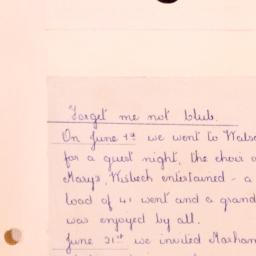 Forget me not blub.
On June 4th we went to Wals
for a guest night, the choir o
Marys, Wisbech entertained - a
load of 41 went and a grand
was enjoyed by all.
June 21st we invited Marham